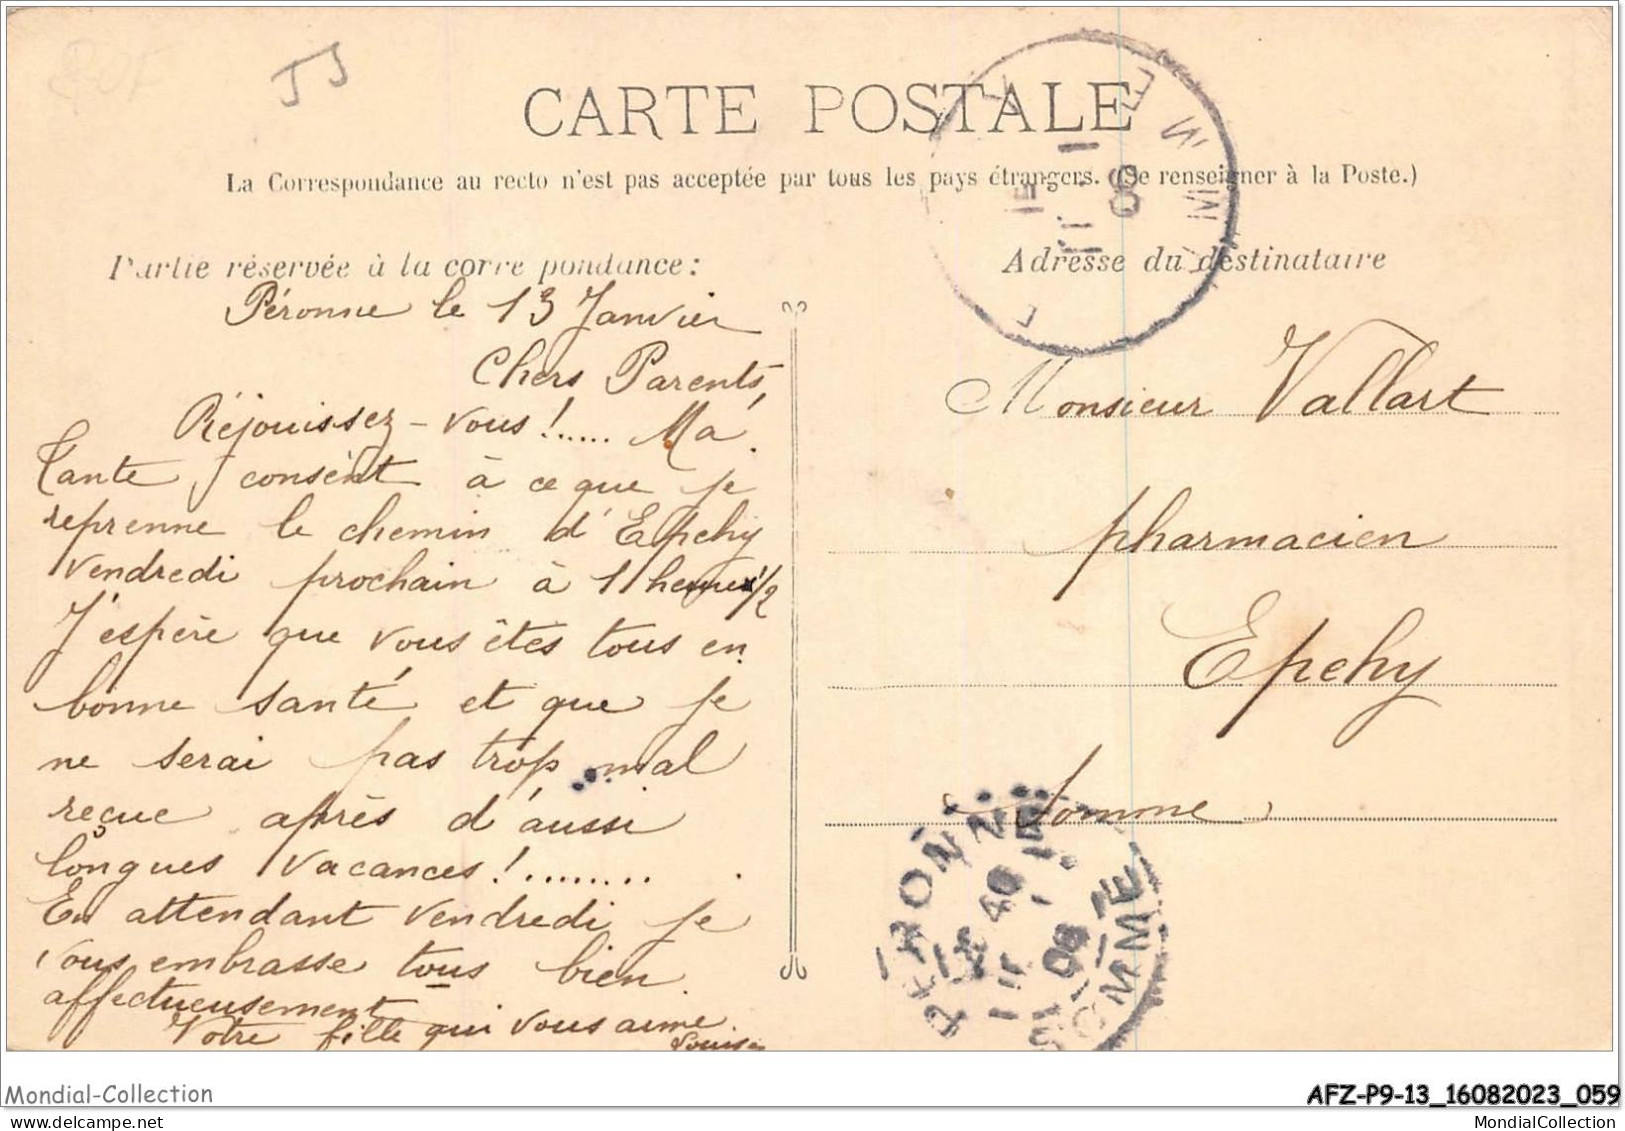 JJ
CARTE POSTALE
La Correspondance au recto n'est pas acceptée par tous les pays étrangers. (Se renseigner à la Poste.)
Partie réservée à la correspondance:
Péronne le 13 Janvier
Chers Parents,
Réjouissez-vous!..... Ma
Tante consent à ce que je
reprenne le chemin d'Epehy
vendredi prochain à 1 heure 1/2
J'espère que vous êtes tous en
bonne santé et que je
ne serai pas trop mal
reçue après d'aussi
longues vacances!........
En attendant vendredi je
vous embrasse tous bien
affectueusement
Votre fille qui vous aime.
Louise
Adresse du destinataire
Monsieur Vallart
pharmacien
Epehy
Somme
PERONNE
SOMME
Mondial-Collection
AFZ-P9-13_16082023_059
MondialCollection